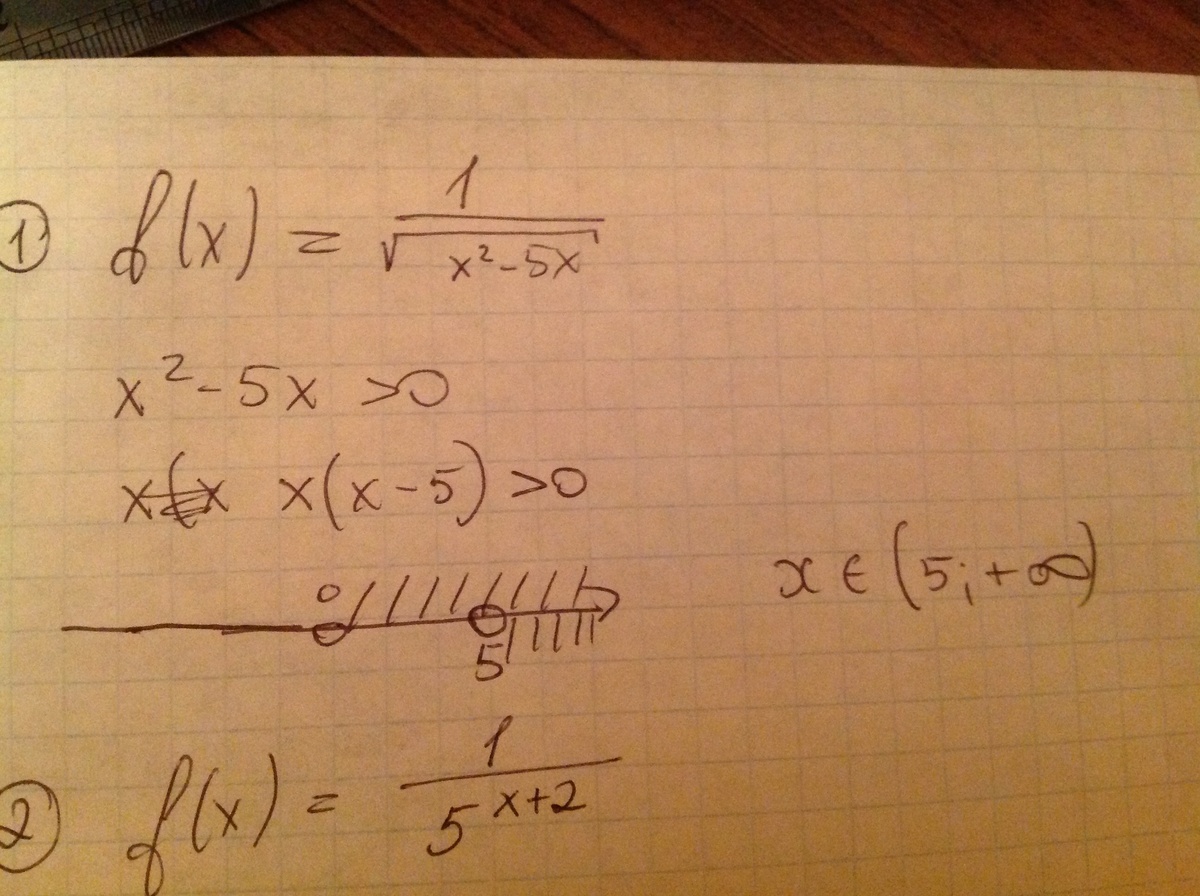 ① f(x) = 1/√(x²-5x)
x²-5x >0
x(x x(x-5) >0
0
5
x ∈ (5;+∞)
② f(x) = 1/5^(x+2)